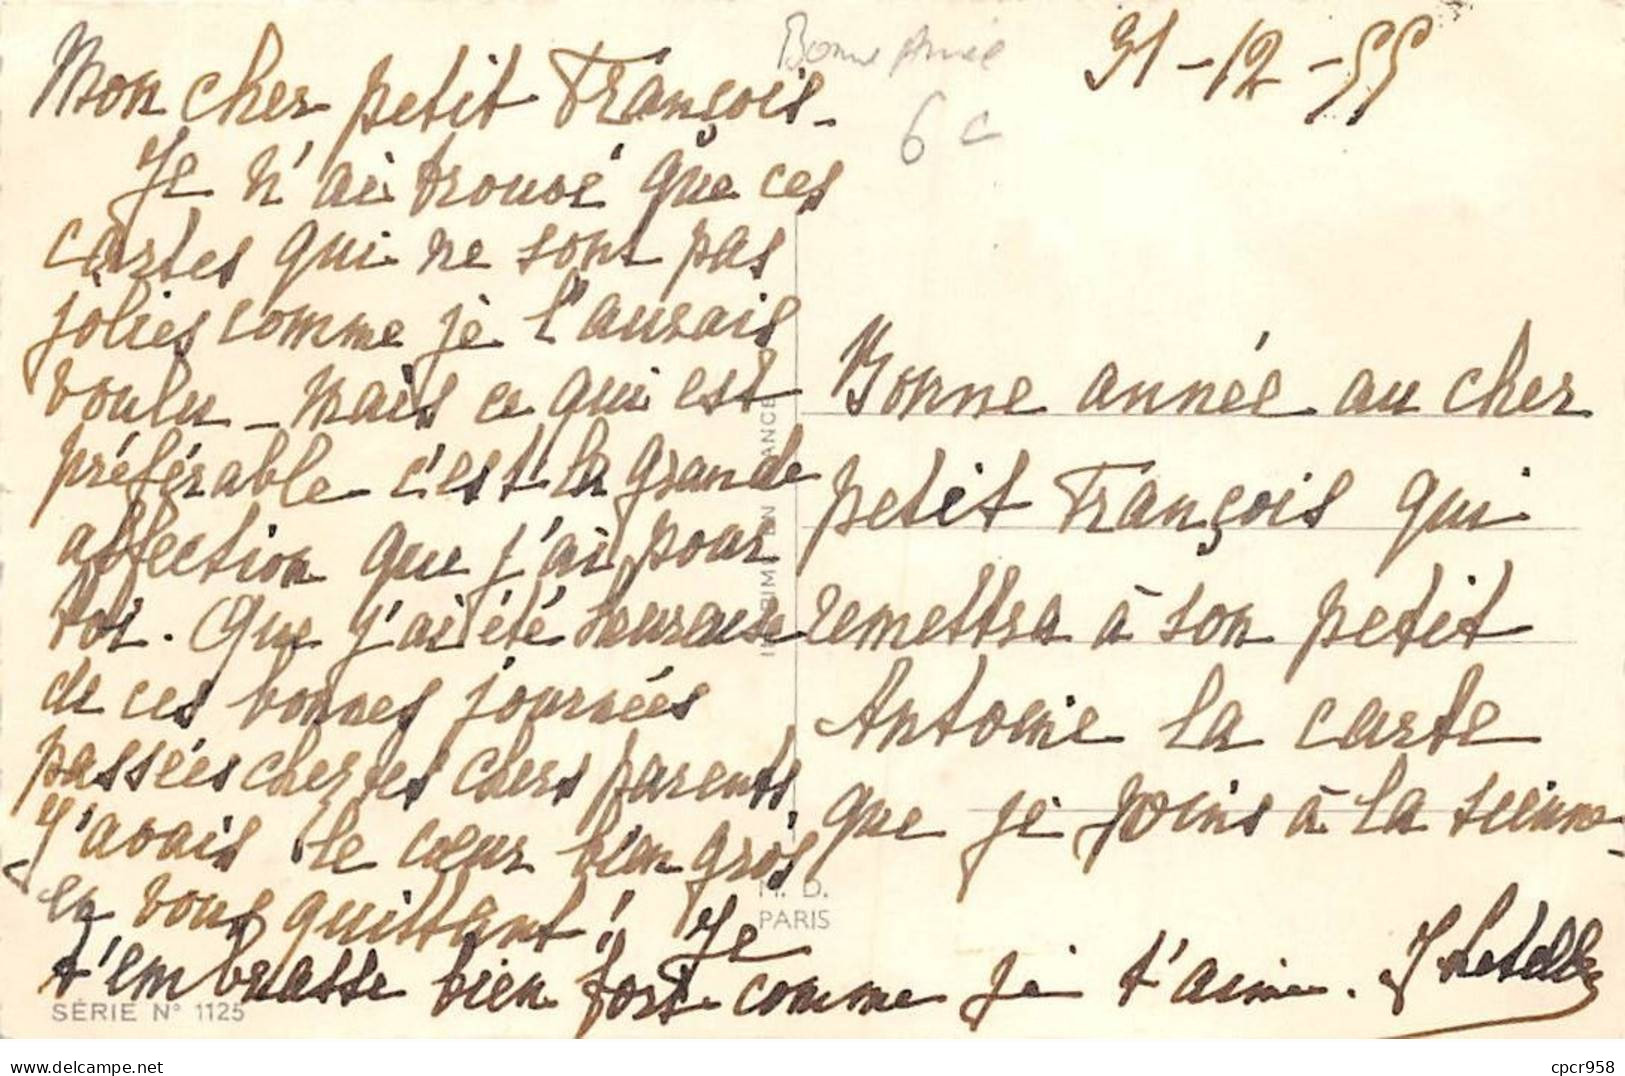 Bonne Année
6 c
31-12-55
Mon cher petit François-
Je n'ai trouvé que ces
cartes qui ne sont pas
jolies comme je l'aurais
voulu - Mais ce qui est
préférable c'est la grande
affection que j'ai pour
toi. Que j'ai été heureuse
de ces bonnes journées
passées chez tes chers parents
J'avais le cœur bien gros
en vous quittant! Je
t'embrasse bien fort comme je t'aime. J Letelle
Bonne année au cher
petit François qui
remettra à son petit
Antoine la carte
que je joins à la sienne
IMPRIMÉ EN FRANCE
M. D.
PARIS
SÉRIE N° 1125
https://www.delcampe.net
cpcr958